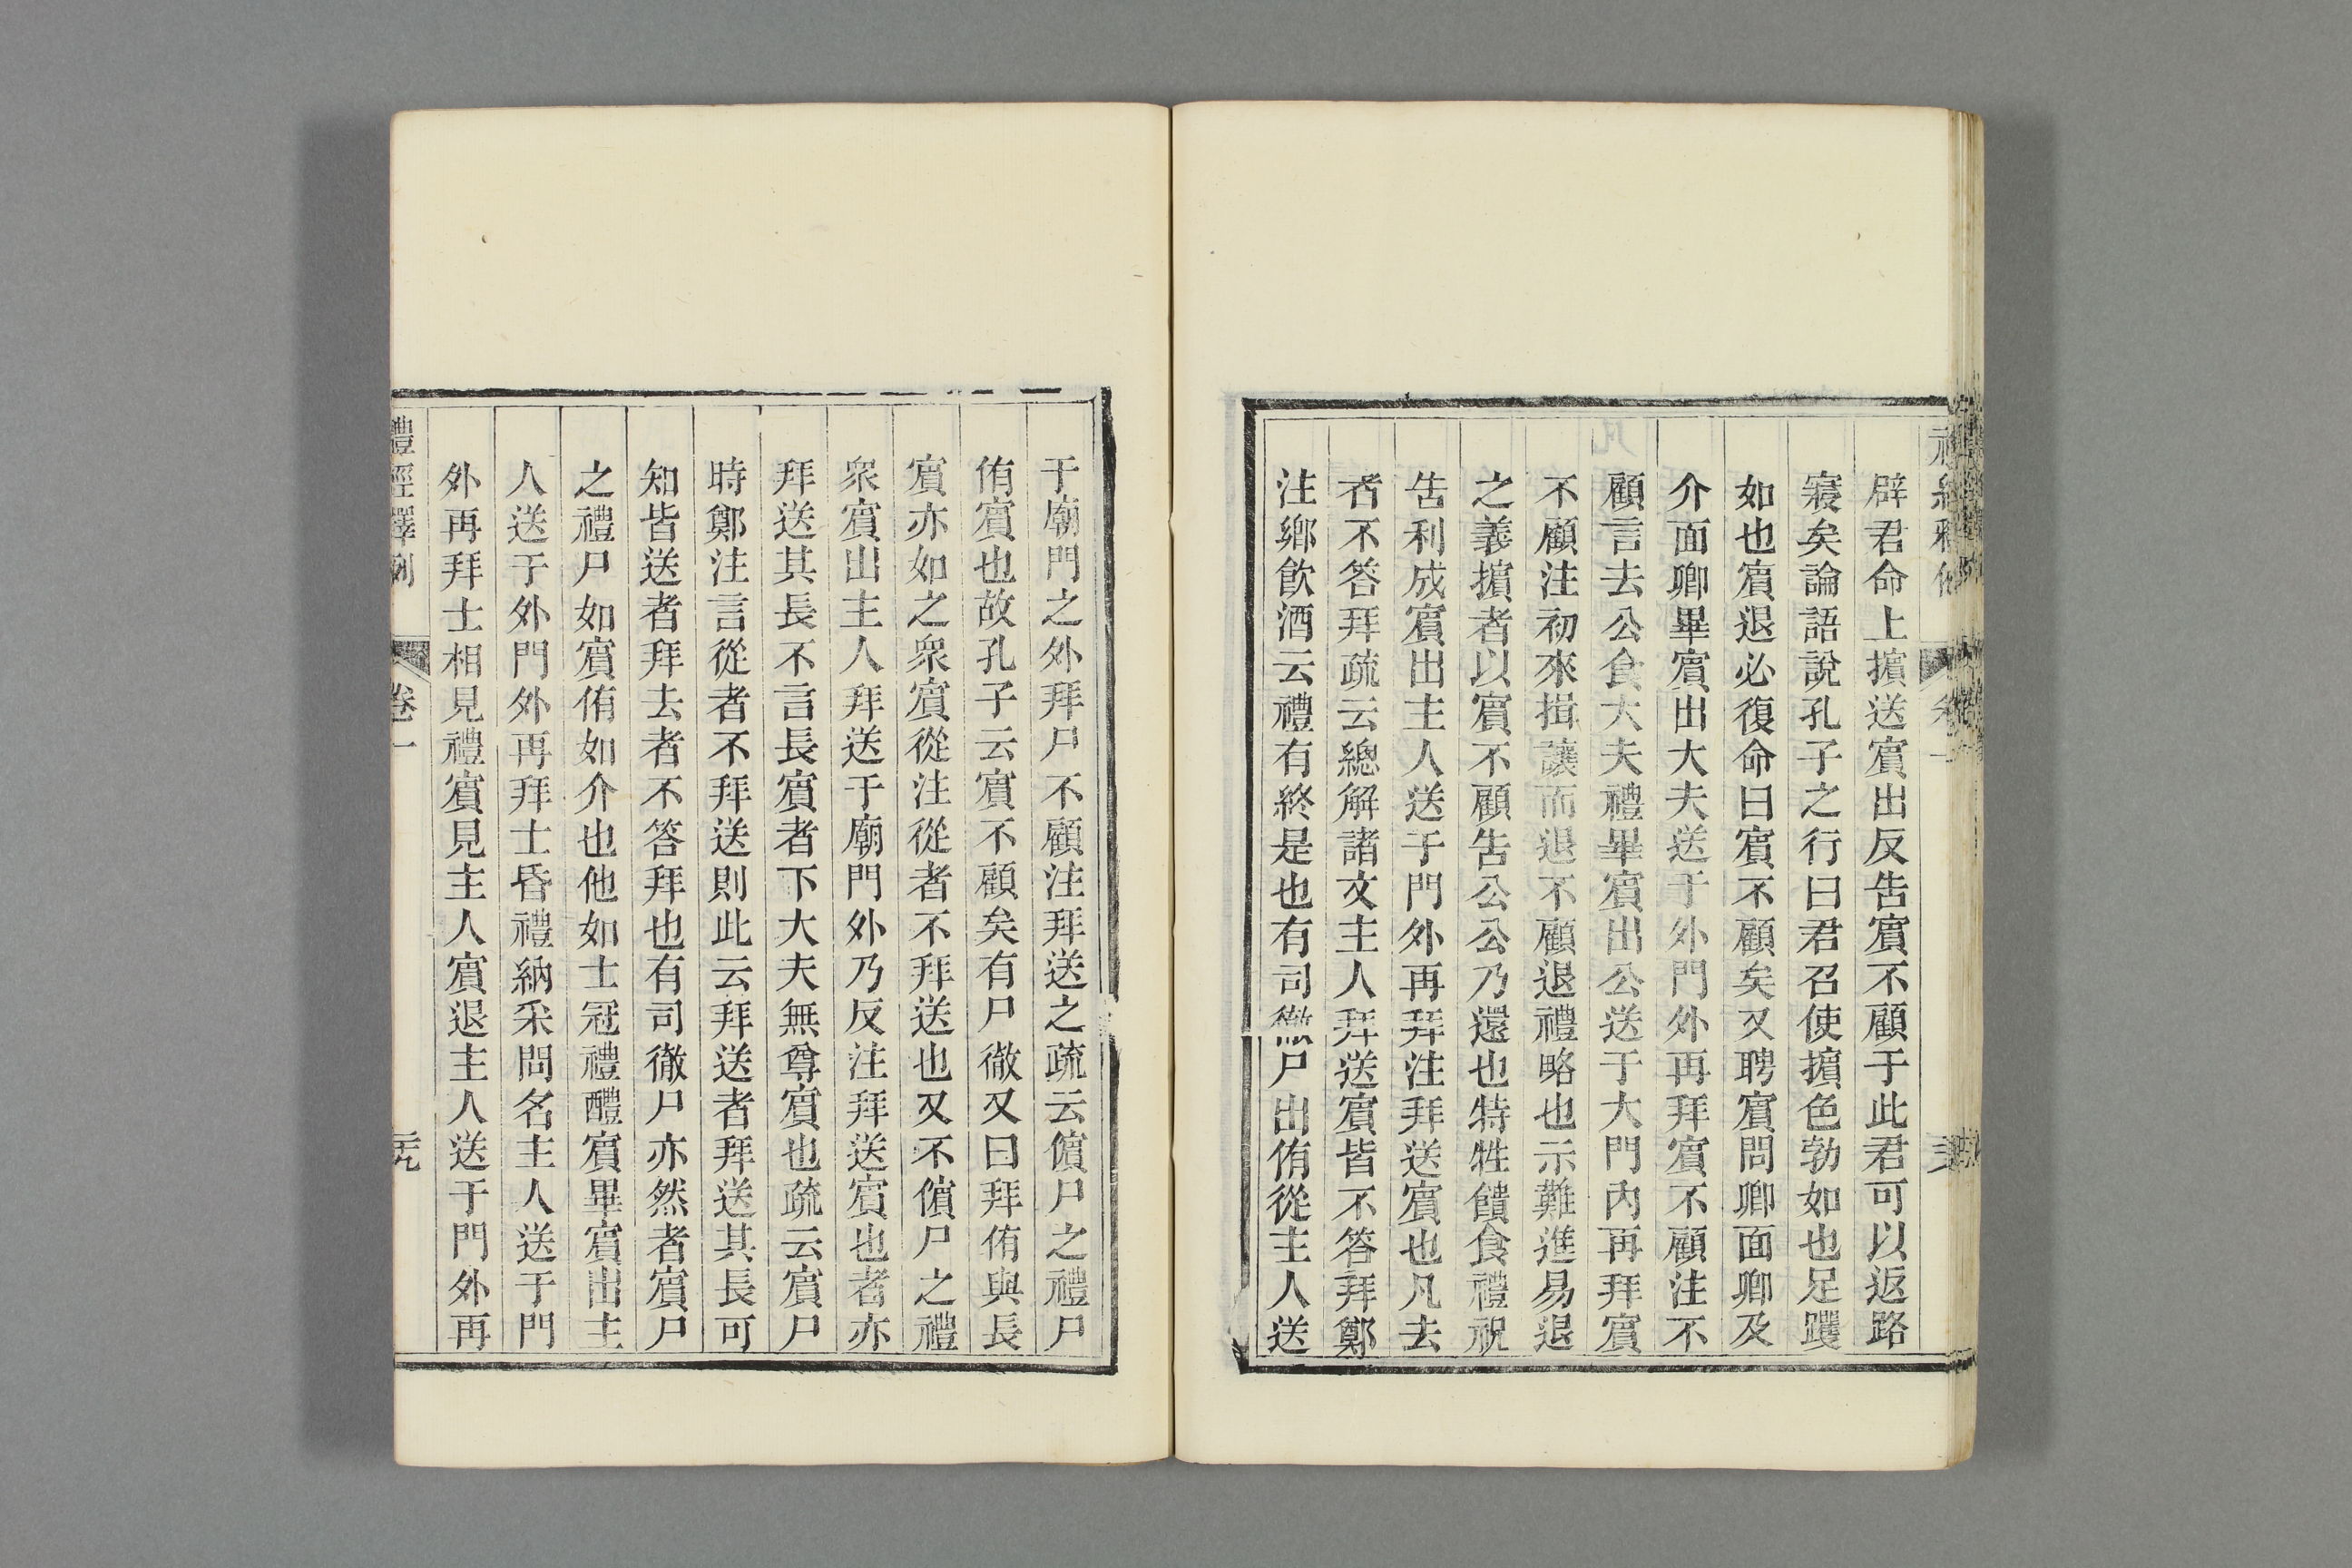 辟君命上擯送賓出反告賓不顧于此君可以返路
寢矣論語說孔子之行曰君召使擯色勃如也足躩
如也賓退必復命曰賓不顧矣又聘賓問卿面卿及
介面卿畢賓出大夫送于外門外再拜賓不顧注不
顧言去公食大夫禮畢賓出公送于大門內再拜賓
不顧注初來揖讓而退不顧退禮略也示難進易退
之義擯者以賓不顧告公公乃還也特牲饋食禮祝
告利成賓出主人送于門外再拜注拜送賓也凡去
者不答拜疏云總解諸文主人拜送賓皆不答拜鄭
注鄉飲酒云禮有終是也有司徹尸出侑從主人送
于廟門之外拜尸不顧注拜送之疏云儐尸之禮尸
侑賓也故孔子云賓不顧矣有尸徹又曰拜侑與長
賓亦如之眾賓從注從者不拜送也又不儐尸之禮
眾賓出主人拜送于廟門外乃反注拜送賓也者亦
拜送其長不言長賓者下大夫無尊賓也疏云賓尸
時鄭注言從者不拜送則此云拜送者拜送其長可
知皆送者拜去者不答拜也有司徹尸亦然者賓尸
之禮尸如賓侑如介也他如士冠禮醴賓畢賓出主
人送于外門外再拜士昏禮納采問名主人送于門
外再拜士相見禮賓見主人賓退主人送于門外再
禮經釋例 卷一 元